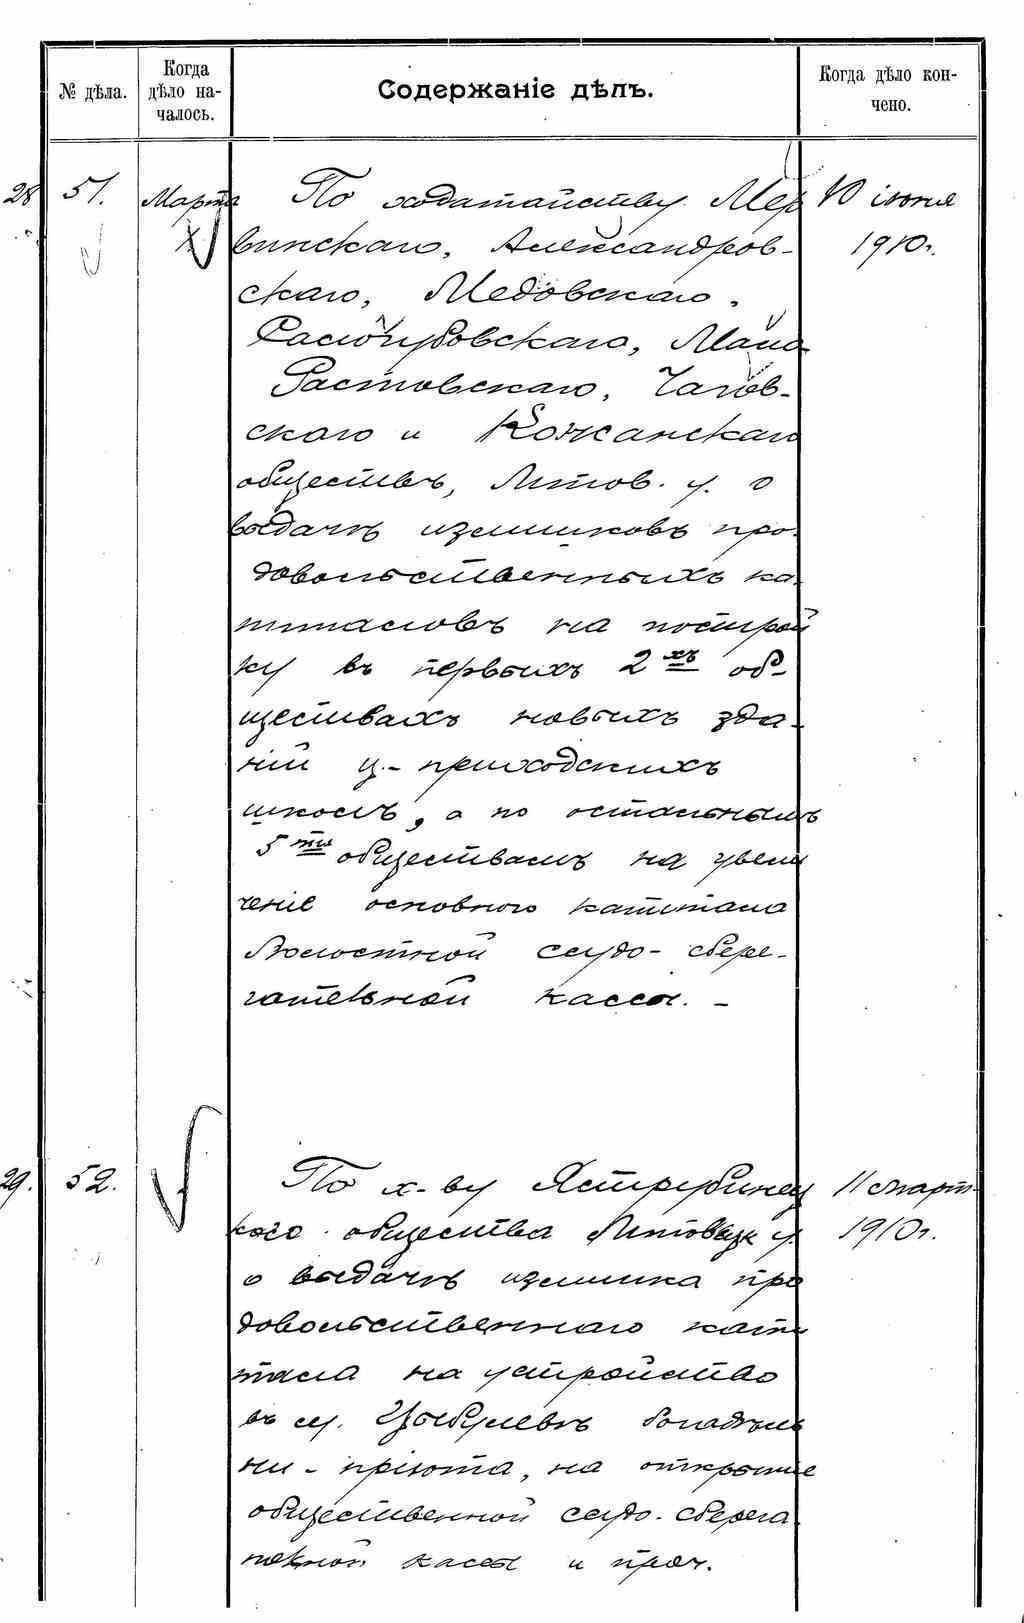 № дѣла.
Когда
дѣло на-
чалось.
Содержаніе дѣлъ.
Когда дѣло кон-
чено.
28 51. Марта По ходатайству Мер 10 іюня
винскаго, Александров- 1910г.
скаго, Медовскаго,
Мало
Растовскаго,
скаго и Кожанскаго
обществъ, Липов. у. о
выдачѣ излишковъ про-
довольственныхъ ка-
питаловъ на построй
ку въ первыхъ 2хъ об-
ществахъ новыхъ зда-
ній ц.-приходскихъ
школъ, а по остальнымъ
5ти обществамъ на увели
ченіе основного капитала
Волостной ссудо-сбере-
гательной кассы. -
29. 52. По х-ву Яструбинец 11 март
кого общества Липовецк у. 1910г.
о выдачѣ излишка про
довольственнаго капи
тала на устройство
въ м. Цыбулевѣ богадѣль
ни-пріюта, на открытіе
общественной ссудо-сберега
тельной кассы и проч.